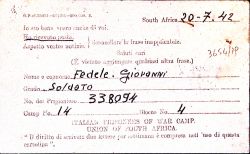 South Africa 20-7.42
Io sto bene vostre carta di voi.
Ho ricevuto posta.
Aspetto vostre notizie. cancellare la frase inapplicabile.
Saluti cari
(È vietato aggiungere qualsiasi altra frase.)
3654/PP
Nome e cognome Fedele. Giovanni
Grado Soldato
No. del Prigioniero 338094
Camp No. 14 Blocco No. 4
ITALIAN PRISONERS OF WAR CAMP.
UNION OF SOUTH AFRICA.
"Il diritto di scrivere due lettere per settimana è compreso nell'uso di questa
cartolina"